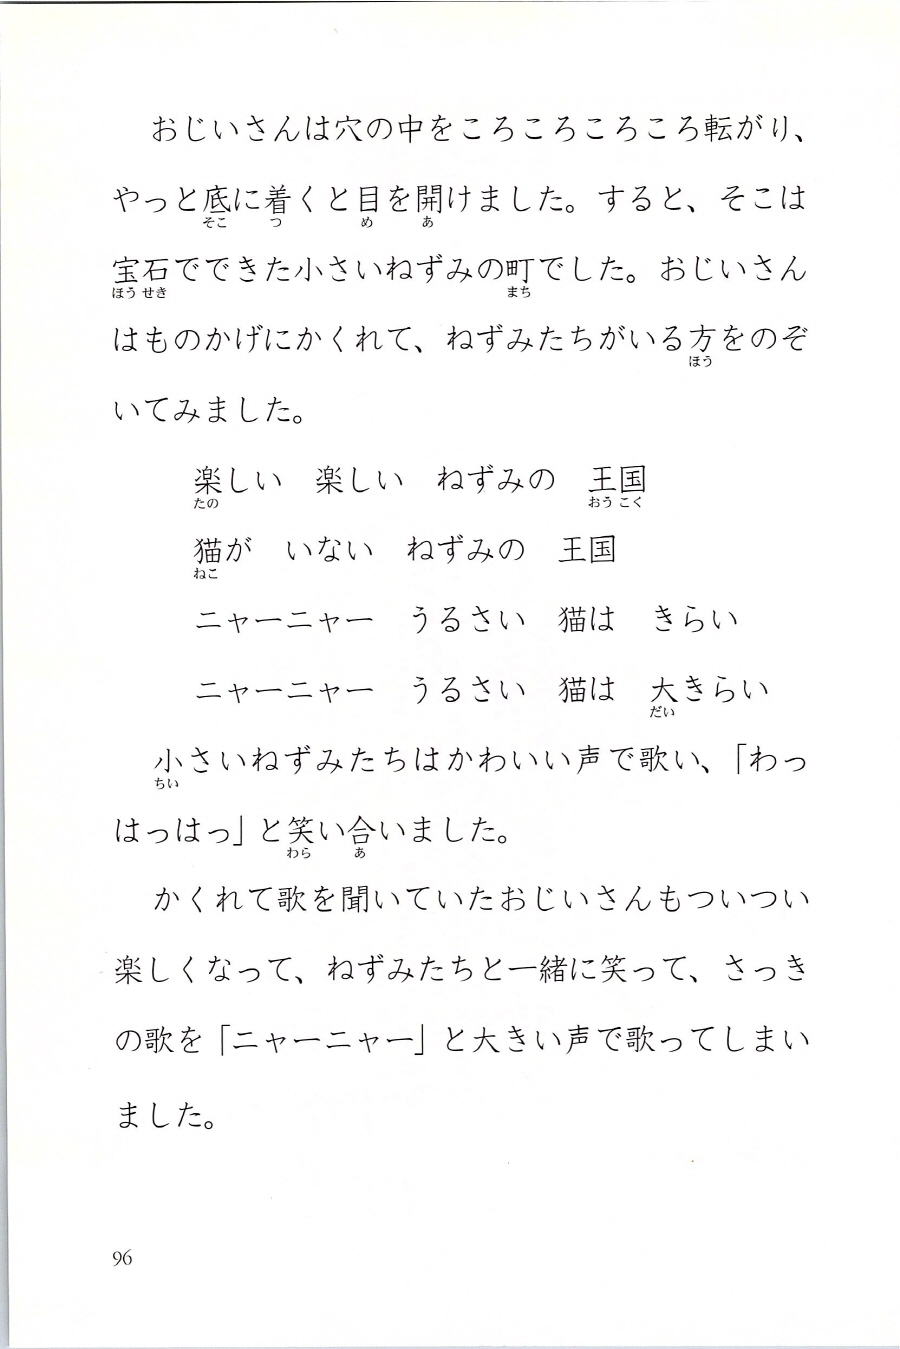 おじいさんは穴の中をころころころころ転がり、
やっと底に着くと目を開けました。すると、そこは
そこ つ め あ
宝石でできた小さいねずみの町でした。おじいさん
ほう せき まち
はものかげにかくれて、ねずみたちがいる方をのぞ
ほう
いてみました。
楽しい　楽しい　ねずみの　王国
たの おう こく
猫が　いない　ねずみの　王国
ねこ
ニャーニャー　うるさい　猫は　きらい
ニャーニャー　うるさい　猫は　大きらい
だい
小さいねずみたちはかわいい声で歌い、「わっ
ちい
はっはっ」と笑い合いました。
わら あ
かくれて歌を聞いていたおじいさんもついつい
楽しくなって、ねずみたちと一緒に笑って、さっき
の歌を「ニャーニャー」と大きい声で歌ってしまい
ました。
96